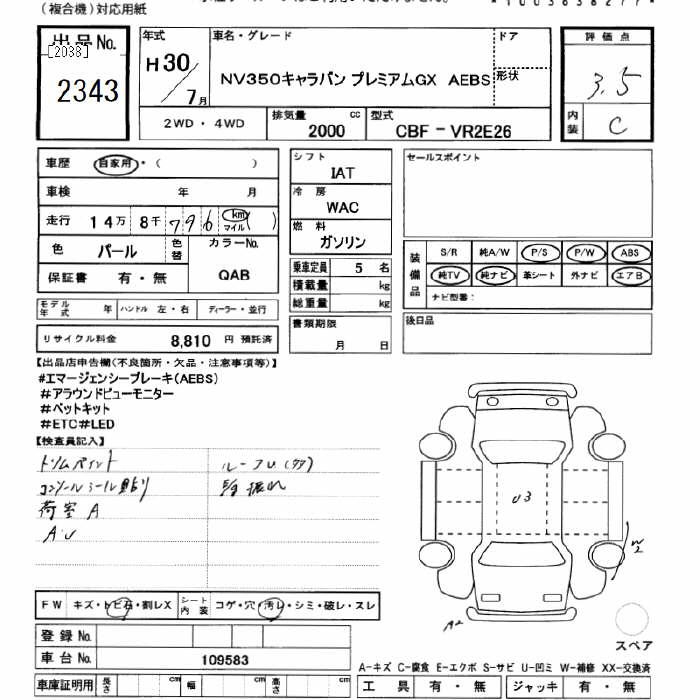 (複合機)対応用紙
出品No.
[2038]
2343
年式
H30/7月
車名・グレード
NV350キャラバン プレミアムGX AEBS
ドア
形状
評価点
3.5
内装
C
2WD・4WD
排気量
2000
cc
型式
CBF-VR2E26
車歴
自家用・( )
車検 年 月
走行 14万 8千 796 km マイル ( )
色
パール
色替
カラーNo.
QAB
保証書 有・無
モデル年式 年 ハンドル 左・右 ディーラー・並行
リサイクル料金 8,810 円 預託済
シフト
IAT
冷房
WAC
燃料
ガソリン
乗車定員 5 名
積載量 kg
総重量 kg
書類期限
月 日
セールスポイント
装備品
S/R 純A/W P/S P/W ABS
純TV 純ナビ 革シート 外ナビ エアB
ナビ型番:
後日品
【出品店申告欄(不良箇所・欠品・注意事項等)】
#エマージェンシーブレーキ(AEBS)
#アラウンドビューモニター
#ペットキット
#ETC#LED
【検査員記入】
トリムペイント
コンソールシール貼り
荷室A
A・U
ルーフU(タタ)
U3
W2
A2
FW キズ・トビ石・割レX
シート内装 コゲ・穴・汚レ・シミ・破レ・スレ
登録No.
車台No. 109583
車庫証明用 長さ cm 幅 cm 高さ cm
スペア
A-キズ C-腐食 E-エクボ S-サビ U-凹ミ W-補修 XX-交換済
工具 有・無 ジャッキ 有・無